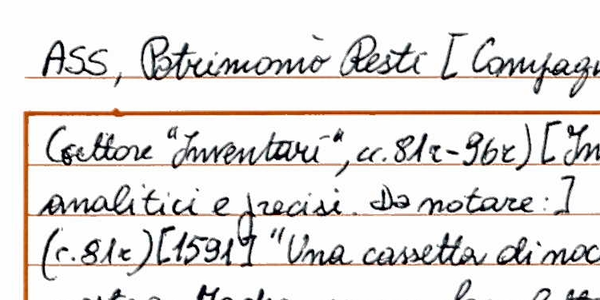 ASS, Patrimonio Resti [Compagn
(settore "Inventari", cc. 81r-96r) [In
analitici e precisi. Da notare:]
(c. 81r) [1591] "Una cassetta di noc